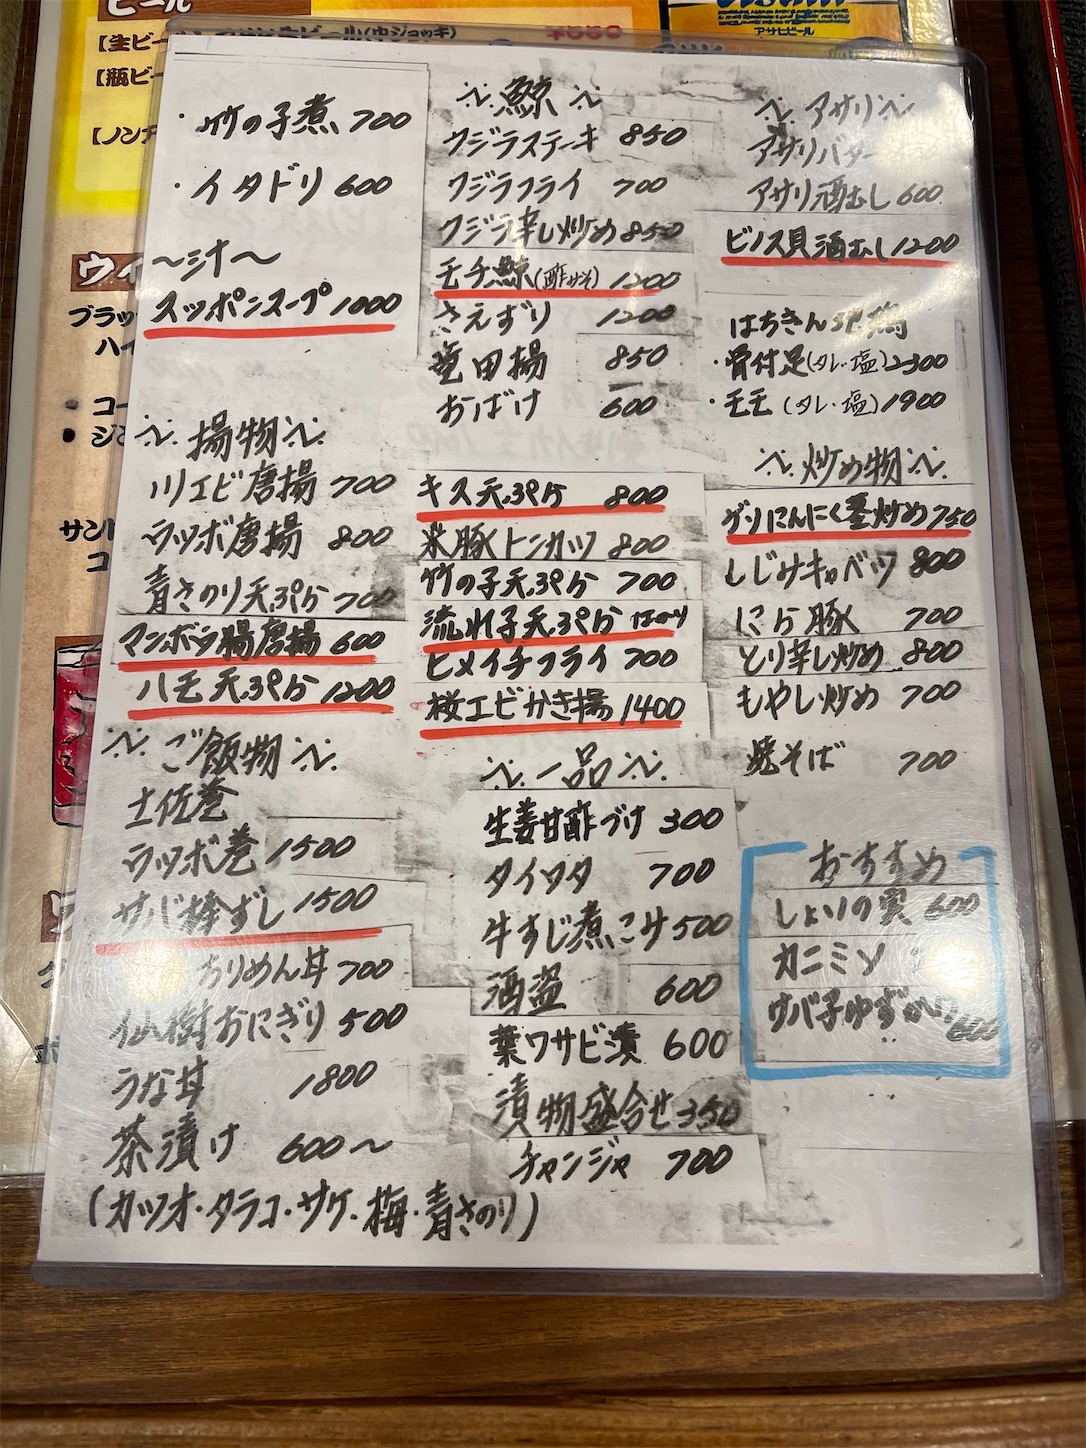 ビール
【生ビー
ビール(中ジョッキ)
¥550
【瓶ビー
【ノンア
アサヒビール
ウイ
ブラッ
ハイ
コー
ジン
サント
コ
・竹の子煮 700
・イタドリ 600
〜汁〜
スッポンスープ 1000
揚物
川エビ唐揚 700
ウツボ唐揚 800
青さのり天ぷら 700
マンボウ腸唐揚 600
ハモ天ぷら 1200
ご飯物
土佐巻
ウツボ巻 1500
サバ棒ずし 1500
ちりめん丼 700
仙樹おにぎり 500
うな丼 1800
茶漬け 600〜
(カツオ・タラコ・サケ・梅・青さのり)
鯨
クジラステーキ 850
クジラフライ 700
クジラ辛し炒め 850
モチ鯨(酢みそ) 1200
さえずり 1200
竜田揚 850
おばけ 600
キス天ぷら 800
米豚トンカツ 800
竹の子天ぷら 700
流れ子天ぷら
ヒメイチフライ 700
桜エビかき揚 1400
一品
生姜甘酢づけ 300
タイワタ 700
牛すじ煮こみ 500
酒盗 600
葉ワサビ漬 600
漬物盛合せ 350
チャンジャ 700
アサリ
アサリバター
アサリ酒むし 600
ビノス貝酒むし 1200
はちきん地鶏
・骨付足(タレ・塩) 2300
・モモ(タレ・塩) 1900
炒め物
ゲソにんにく茎炒め 750
しじみキャベツ 800
にら豚 700
とり辛し炒め 800
もやし炒め 700
焼そば 700
おすすめ
しょいの実 600
カニミソ
ウバ子ゆずがけ 600